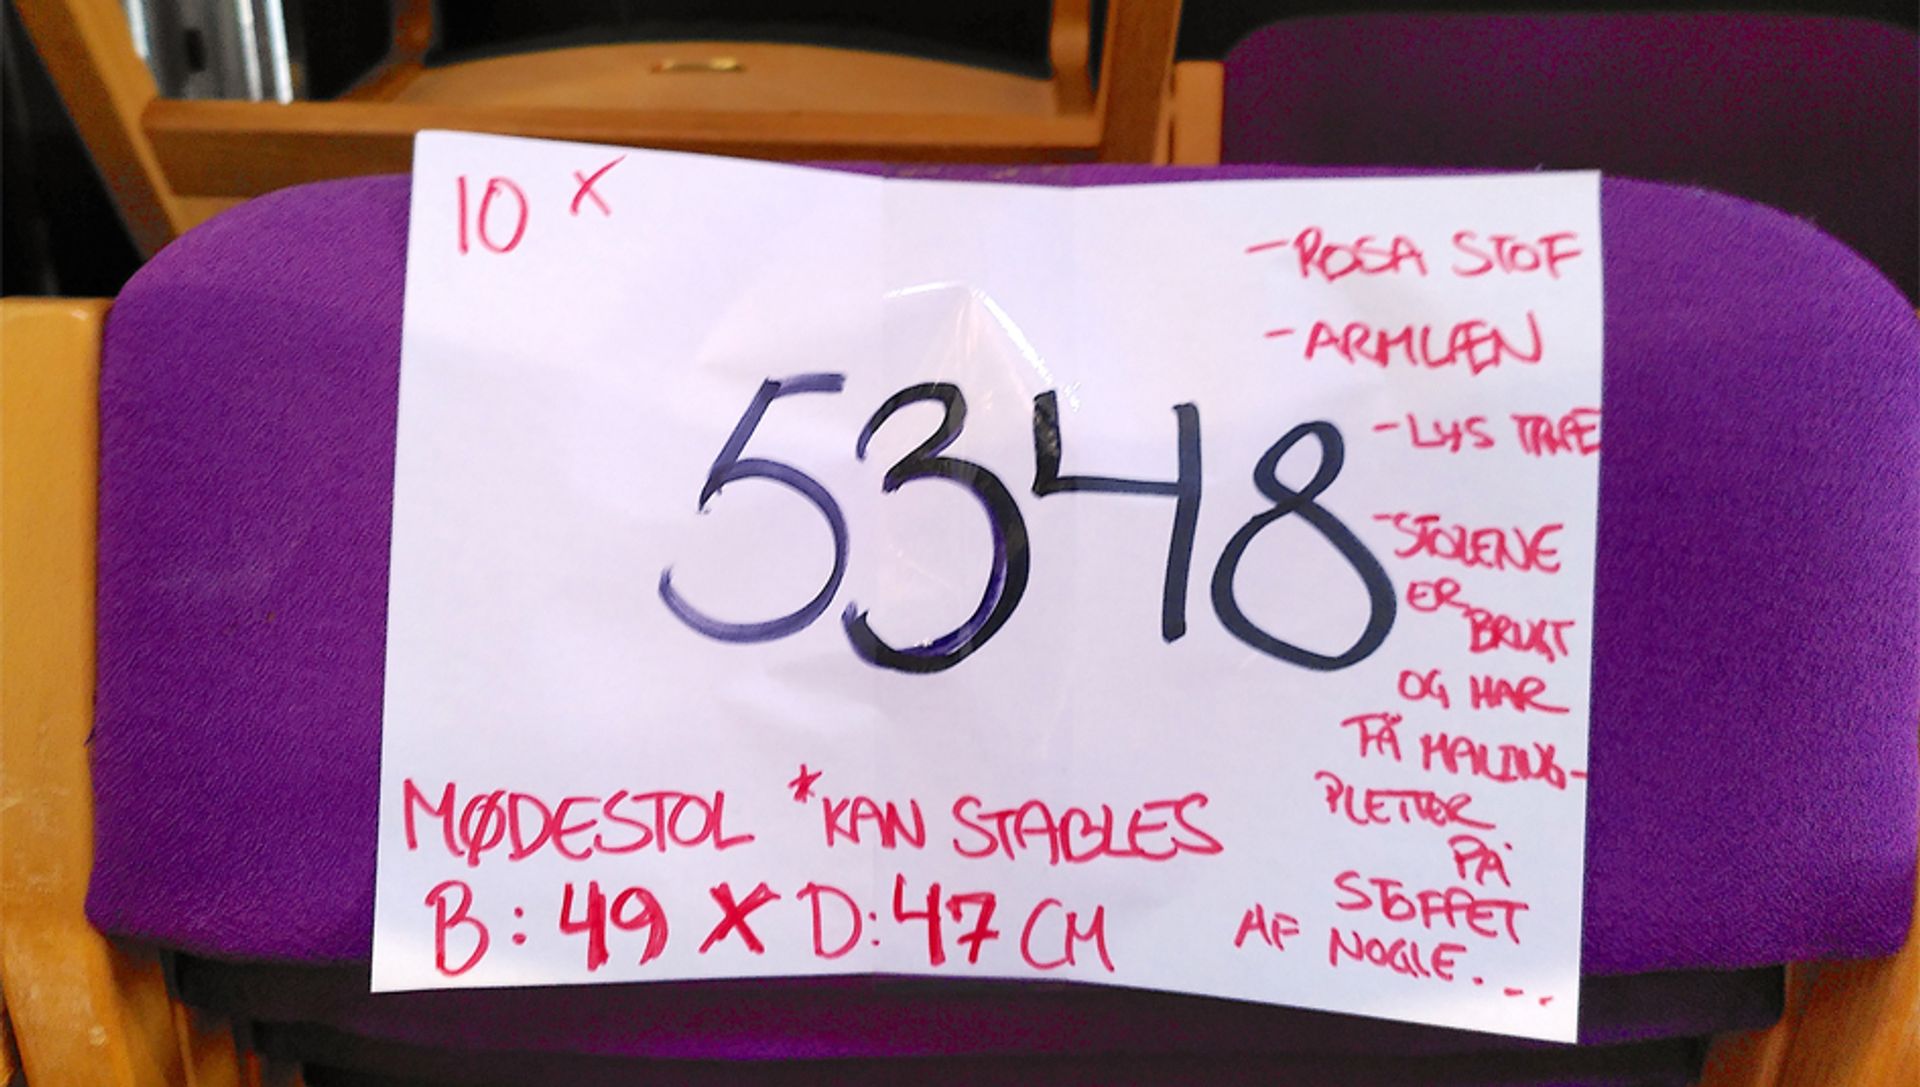 10 X
5348
- ROSA STOF
- ARMLÆN
- LYS TRÆ
- STOLENE
ER
BRUGT
OG HAR
FÅ MALING-
PLETTER
PÅ
STOFFET
AF NOGLE...
MØDESTOL *KAN STABLES
B: 49 X D: 47 CM